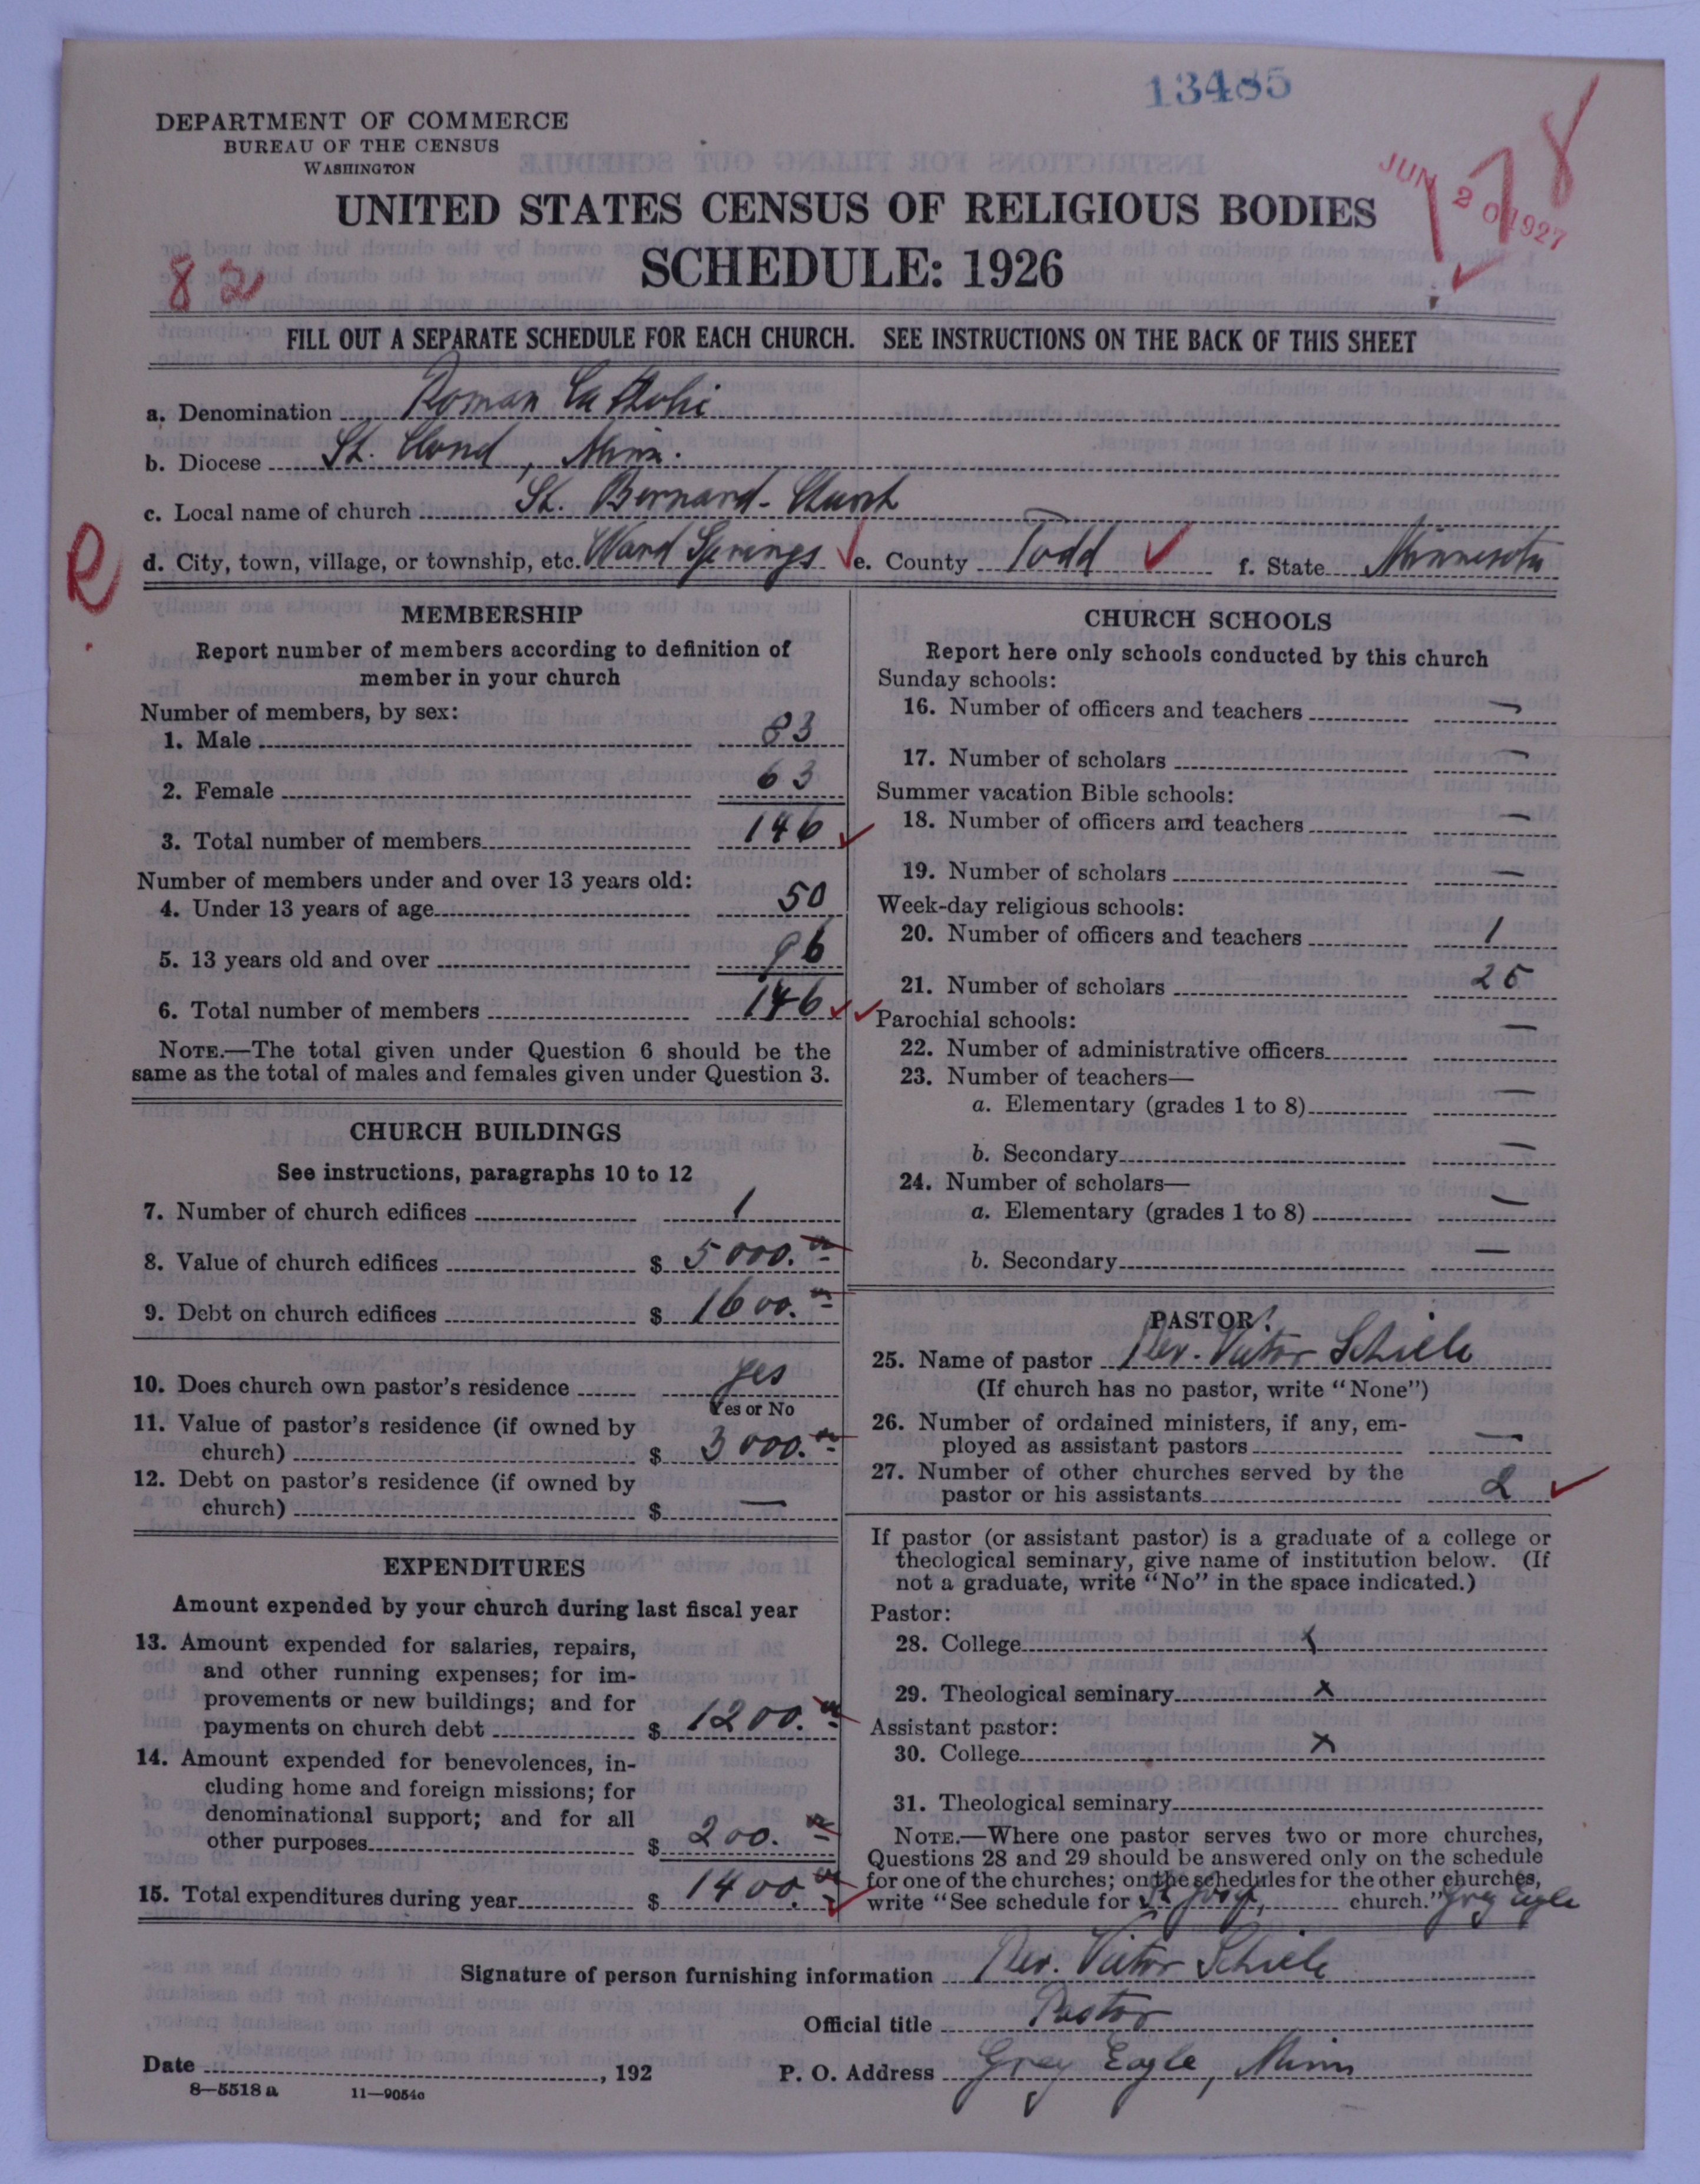 13485
DEPARTMENT OF COMMERCE
BUREAU OF THE CENSUS
WASHINGTON
JUN 20 1927
178
UNITED STATES CENSUS OF RELIGIOUS BODIES
SCHEDULE: 1926
82
FILL OUT A SEPARATE SCHEDULE FOR EACH CHURCH. SEE INSTRUCTIONS ON THE BACK OF THIS SHEET
a. Denomination Roman Catholic
b. Diocese St. Cloud, Minn.
c. Local name of church St. Bernard-Church
R
d. City, town, village, or township, etc. Ward Springs e. County Todd f. State Minnesota
MEMBERSHIP
Report number of members according to definition of
member in your church
Number of members, by sex:
1. Male 83
2. Female 63
3. Total number of members 146
Number of members under and over 13 years old:
4. Under 13 years of age 50
5. 13 years old and over 96
6. Total number of members 146
NOTE.—The total given under Question 6 should be the
same as the total of males and females given under Question 3.
CHURCH BUILDINGS
See instructions, paragraphs 10 to 12
7. Number of church edifices 1
8. Value of church edifices $ 5000.
9. Debt on church edifices $ 1600.
10. Does church own pastor's residence yes
Yes or No
11. Value of pastor's residence (if owned by
church) $ 3000.
12. Debt on pastor's residence (if owned by
church) $ —
EXPENDITURES
Amount expended by your church during last fiscal year
13. Amount expended for salaries, repairs,
and other running expenses; for im-
provements or new buildings; and for
payments on church debt $ 1200.
14. Amount expended for benevolences, in-
cluding home and foreign missions; for
denominational support; and for all
other purposes $ 200.
15. Total expenditures during year $ 1400.
CHURCH SCHOOLS
Report here only schools conducted by this church
Sunday schools:
16. Number of officers and teachers —
17. Number of scholars —
Summer vacation Bible schools:
18. Number of officers and teachers —
19. Number of scholars —
Week-day religious schools:
20. Number of officers and teachers 1
21. Number of scholars 25
Parochial schools:
22. Number of administrative officers —
23. Number of teachers—
a. Elementary (grades 1 to 8) —
b. Secondary —
24. Number of scholars—
a. Elementary (grades 1 to 8) —
b. Secondary —
PASTOR
25. Name of pastor Rev. Victor Schiele
(If church has no pastor, write "None")
26. Number of ordained ministers, if any, em-
ployed as assistant pastors —
27. Number of other churches served by the
pastor or his assistants 2
If pastor (or assistant pastor) is a graduate of a college or
theological seminary, give name of institution below. (If
not a graduate, write "No" in the space indicated.)
Pastor:
28. College x
29. Theological seminary x
Assistant pastor:
30. College x
31. Theological seminary
NOTE.—Where one pastor serves two or more churches,
Questions 28 and 29 should be answered only on the schedule
for one of the churches; on the schedules for the other churches,
write "See schedule for St. church." Grey Eagle
Signature of person furnishing information Rev. Victor Schiele
Official title Pastor
Date , 192 P. O. Address Grey Eagle, Minn
8—5518 a 11—9054c